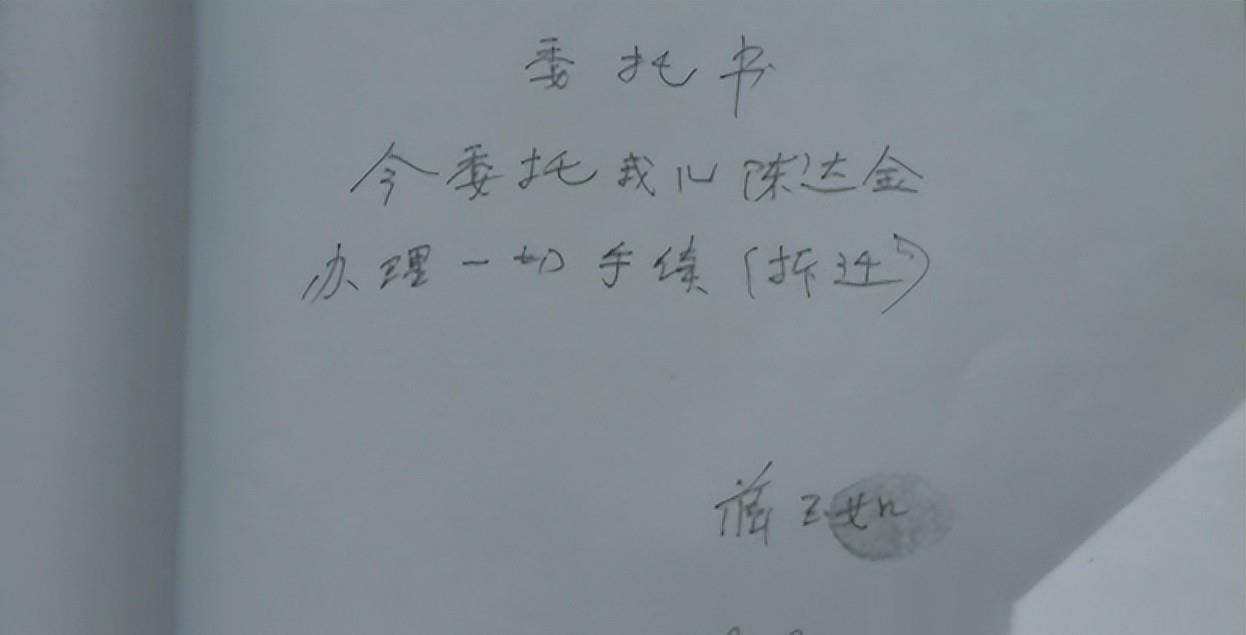 委托书
今委托我儿陈达金
办理一切手续(拆迁)